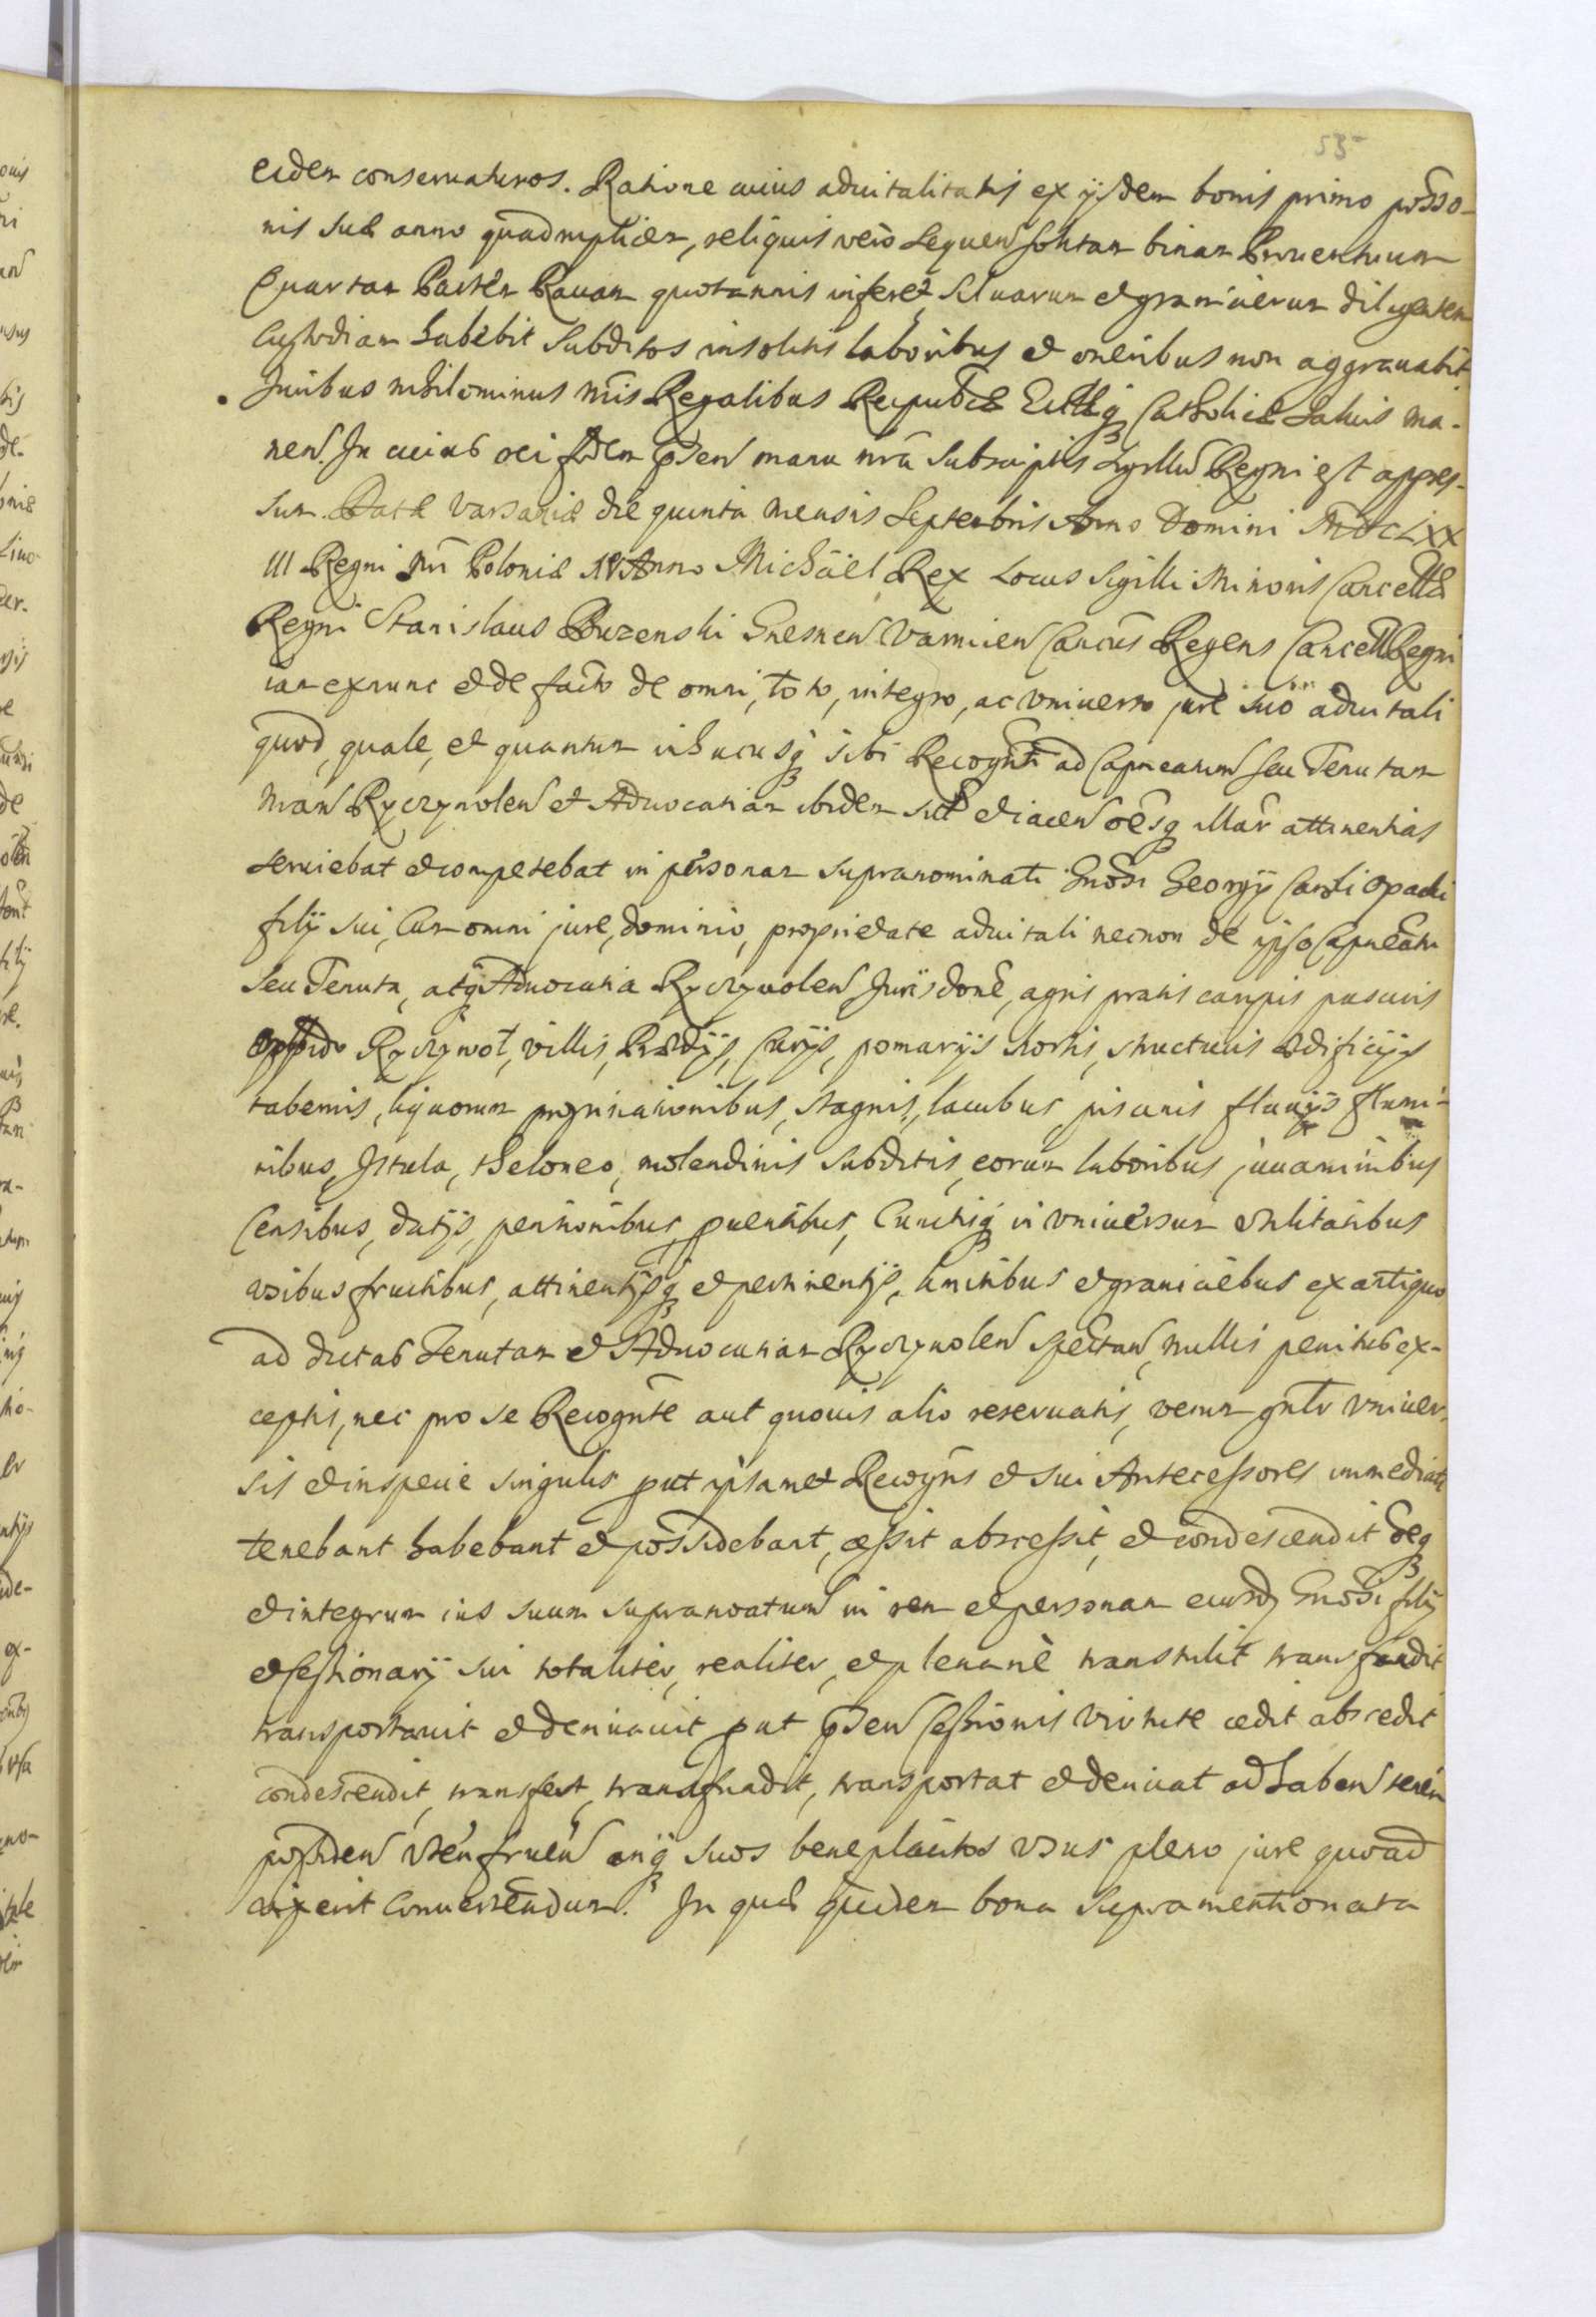 53
eidem conseruaturos. Ratione cuius aduitalitatis ex ijsdem bonis primo posso-
nis suæ anno quadruplicem, reliquis vero sequen solitam binam Prouentuum
Quartam Partem Rauam quotannis inferet, siluarum et granicierum diligentem
Custodiam habebit subditos insolitis laboribus et oneribus non aggrauabit.
Juribus nihilominus nris Regalibus Reipublicæ Ecclæq Catholicæ saluis ma-
nen. In cuius rei fidem pnsen manu nrã subscriptis sigillu Regni est appres-
sum. Datæ Varsauiæ die quinta mensis Septembris Anno Domini MDCLXX
III Regni nri Poloniæ IV Anno Michäel Rex Locus sigilli Minoris Cancellæ
Regni Stanislaus Buzenski Gnesnen Varmien Cancus Regens Cancell Regni
iam exnunc et de facto de omni, toto, integro, ac vniuerso jure suo aduitali
quod, quale, et quantum inhucusq sibi Recognti ad Capneatum seu Tenutam
Nram Ryczywolen et Aduocatiam ibidem sit et iacen oesq illar attinentias
seruiebat et competebat in personam supranominati Gnosi Georgij Caroli Opacki
filij sui, Cum omni jure, dominio, proprietate aduitali necnon de ipso Capneatu
seu Tenuta, atq Aduocatia Ryczywolen Jurisdone, agris pratis campis pascuis
oppido Ryczywol, villis, Prædijs, Curijs, pomarijs hortis, structuris ædificijs
tabernis, liquorum propinationibus, stagnis, lacubus piscinis fluuijs flumi-
nibus, Istula, theloneo, molendinis subditis, eorum laboribus, juuaminibus
Censibus, datijs, pensionibus, puentibus, Cunctisq in vniuersum vtilitatibus
vsibus fructibus, attinentijsq et pertinentijs, limitibus et graniciebus ex antiquo
ad dictas Tenutam et Aduocatiam Ryczywolen spectan, nullis penitus ex-
ceptis, nec pro se Recognte aut quouis alio reseruatis, verum gnlr vniuer-
sis et in specie singulis put ipsamet Recogns et sui Antecessores immediate
tenebant habebant et possidebant, cessit abscessit, et condescendit oeq
et integrum ius suum supranoatum in rem et personam eiusdj Gnosi filij
et Cessionarij sui totaliter, realiter, et plenarie transtulit transfundit
transportauit et deriuauit put pnsen Cessionis virtute cedit abscedit
condescendit, transfert, transfundit, transportat et deriuat ad haben tenen
possiden vten fruen inq suos beneplacitos vsus pleno jure quoad
vixerit Conuertendum. In quæ quidem bona supramentionata